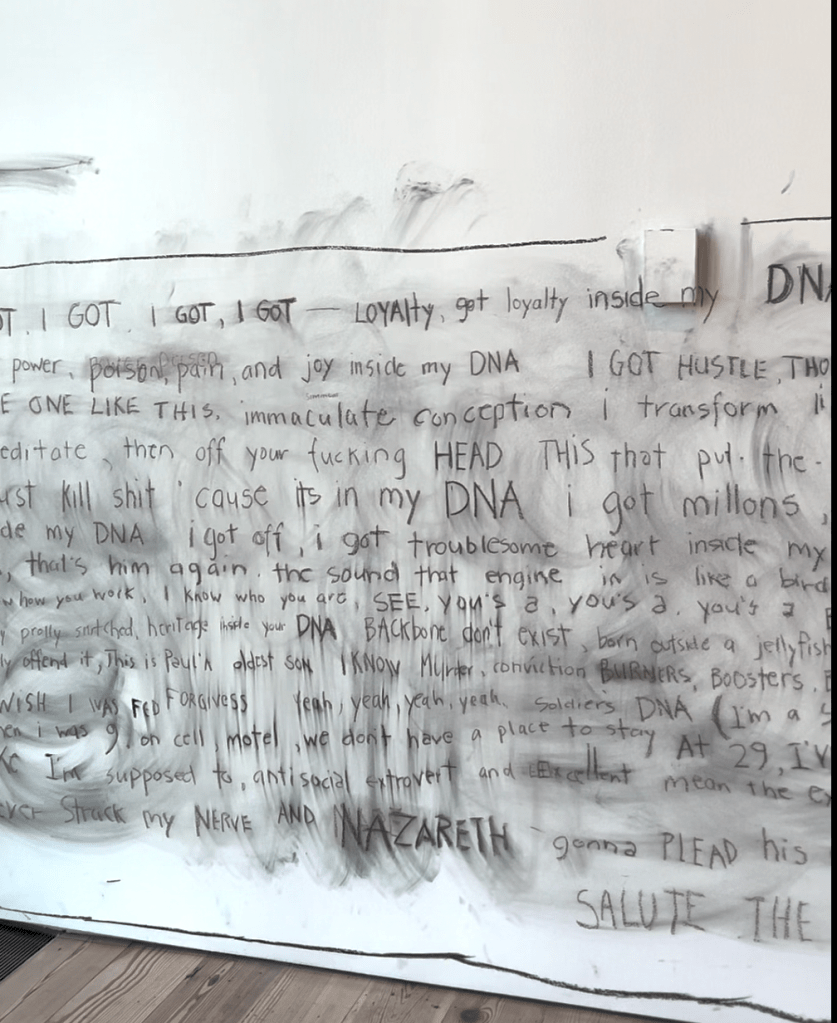 I GOT, I GOT, I GOT — LOYALTY, got loyalty inside my DNA
power, poison, pain, and joy inside my DNA I GOT HUSTLE, THO
ONE LIKE THIS, immaculate conception i transform li
editate, then off your fucking HEAD THIS that put the
rst kill shit 'cause its in my DNA i got millons,
de my DNA i got off, i got troublesome heart inside my
, that's him again. the sound that engine in is like a bird
w how you work, I know who you are, SEE, you's a, you's a, you's a
heritage inside your DNA BACKbone don't exist, born outside a jellyfish
ly offend it, This is oldest son I KNOW Murder, conviction BURNERS, BOOSTERS,
WISH I WAS FED FORGIVESS Yeah, yeah, yeah, yeah, Soldiers DNA (I'm a S
en i was 9, on cell, motel, we don't have a place to stay At 29, I'V
I'm supposed to, antisocial extrovert and Excellent mean the ex
Struck my NERVE AND NAZARETH gonna PLEAD his
SALUTE THE